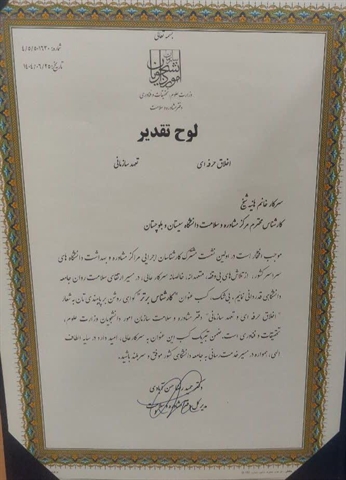 بسمه تعالی
شماره: ۴/۵/۵۰۱۶۲۰
تاریخ: ۱۴۰۴/۰۶/۲۵
سازمان امور دانشجویان
وزارت علوم، تحقیقات و فناوری
دفتر مشاوره و سلامت
لوح تقدیر
اخلاق حرفه ای تعهد سازمانی
سرکار خانم هانیه شیخ
کارشناس محترم مرکز مشاوره و سلامت دانشگاه سیستان و بلوچستان
موجب افتخار است در اولین نشست مشترک کارشناسان اجرایی مراکز مشاوره و بهداشت دانشگاه های
سراسر کشور، از تلاش‌های بی‌وقفه، متعهدانه، خالصانه سرکار عالی، در مسیر ارتقای سلامت روان جامعه
دانشگاهی قدردانی نمایم. بی‌شک، کسب عنوان "کارشناس برتر" گواهی روشن بر پایبندی تان به شعار
"اخلاق حرفه ای و تعهد سازمانی" دفتر مشاوره و سلامت سازمان امور دانشجویان وزارت علوم،
تحقیقات و فناوری است. ضمن تبریک کسب این عنوان به سرکار عالی، امید دارد در سایه الطاف
الهی، همواره در مسیر خدمت رسانی به جامعه دانشگاهی کشور موفق و سربلند باشید.
دکتر حمید
مدیر کل دفتر مشاوره و سلامت